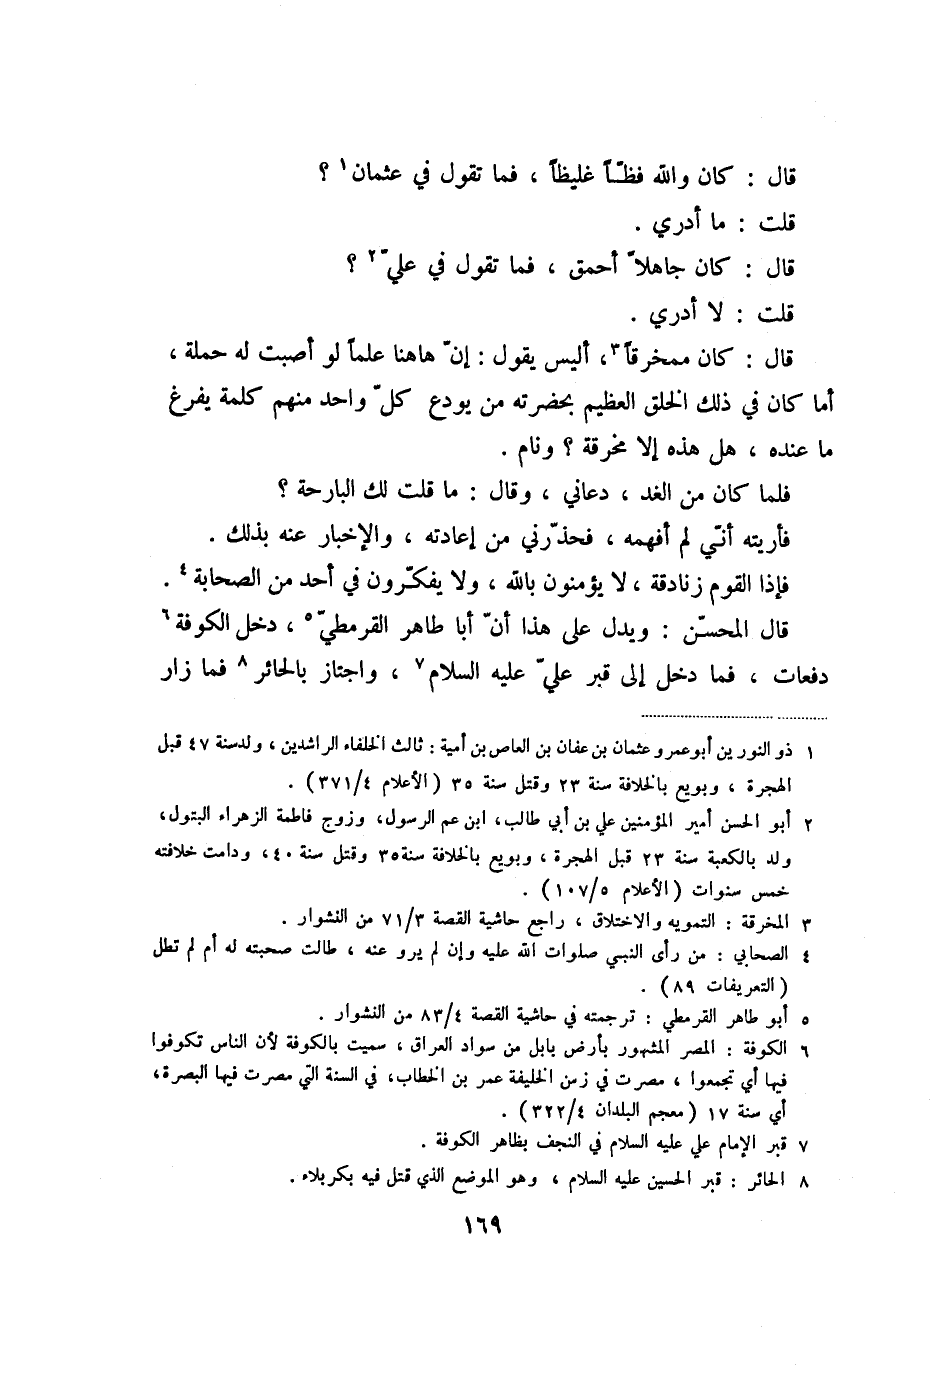 قال : كان والله فظّاً غليظاً ، فما تقول في عثمان١ ؟
قلت : ما أدري .
قال : كان جاهلاً أحمق ، فما تقول في عليّ٢ ؟
قلت : لا أدري .
قال : كان ممخرقاً٣، أليس يقول : إنّ هاهنا علماً لو أصبت له حملة ،
أما كان في ذلك الخلق العظيم بحضرته من يودع كلّ واحد منهم كلمة يفرغ
ما عنده ، هل هذه إلا مخرقة ؟ ونام .
فلما كان من الغد ، دعاني ، وقال : ما قلت لك البارحة ؟
فأريته أنّي لم أفهمه ، فحذّرني من إعادته ، والإخبار عنه بذلك .
فإذا القوم زنادقة ، لا يؤمنون بالله ، ولا يفكّرون في أحد من الصحابة٤ .
قال المحسّن : ويدل على هذا أنّ أبا طاهر القرمطيّ٥ ، دخل الكوفة٦
دفعات ، فما دخل إلى قبر عليّ عليه السلام٧ ، واجتاز بالحائر٨ فما زار
١ ذو النورين أبو عمرو عثمان بن عفان بن العاص بن أمية : ثالث الخلفاء الراشدين ، ولد سنة ٤٧ قبل
الهجرة ، وبويع بالخلافة سنة ٢٣ وقتل سنة ٣٥ (الأعلام ٣٧١/٤) .
٢ أبو الحسن أمير المؤمنين علي بن أبي طالب، ابن عم الرسول، وزوج فاطمة الزهراء البتول،
ولد بالكعبة سنة ٢٣ قبل الهجرة ، وبويع بالخلافة سنة ٣٥ وقتل سنة ٤٠، ودامت خلافته
خمس سنوات (الأعلام ١٠٧/٥) .
٣ المخرقة : التمويه والاختلاق ، راجع حاشية القصة ٧١/٣ من النشوار .
٤ الصحابي : من رأى النبي صلوات الله عليه وإن لم يرو عنه ، طالت صحبته له أم لم تطل
(التعريفات ٨٩) .
٥ أبو طاهر القرمطي : ترجمته في حاشية القصة ٨٣/٤ من النشوار .
٦ الكوفة : المصر المشهور بأرض بابل من سواد العراق ، سميت بالكوفة لأن الناس تكوفوا
فيها أي تجمعوا ، مصرت في زمن الخليفة عمر بن الخطاب، في السنة التي مصرت فيها البصرة،
أي سنة ١٧ (معجم البلدان ٣٢٢/٤) .
٧ قبر الإمام علي عليه السلام في النجف بظاهر الكوفة .
٨ الحائر : قبر الحسين عليه السلام ، وهو الموضع الذي قتل فيه بكربلاء .
١٦٩